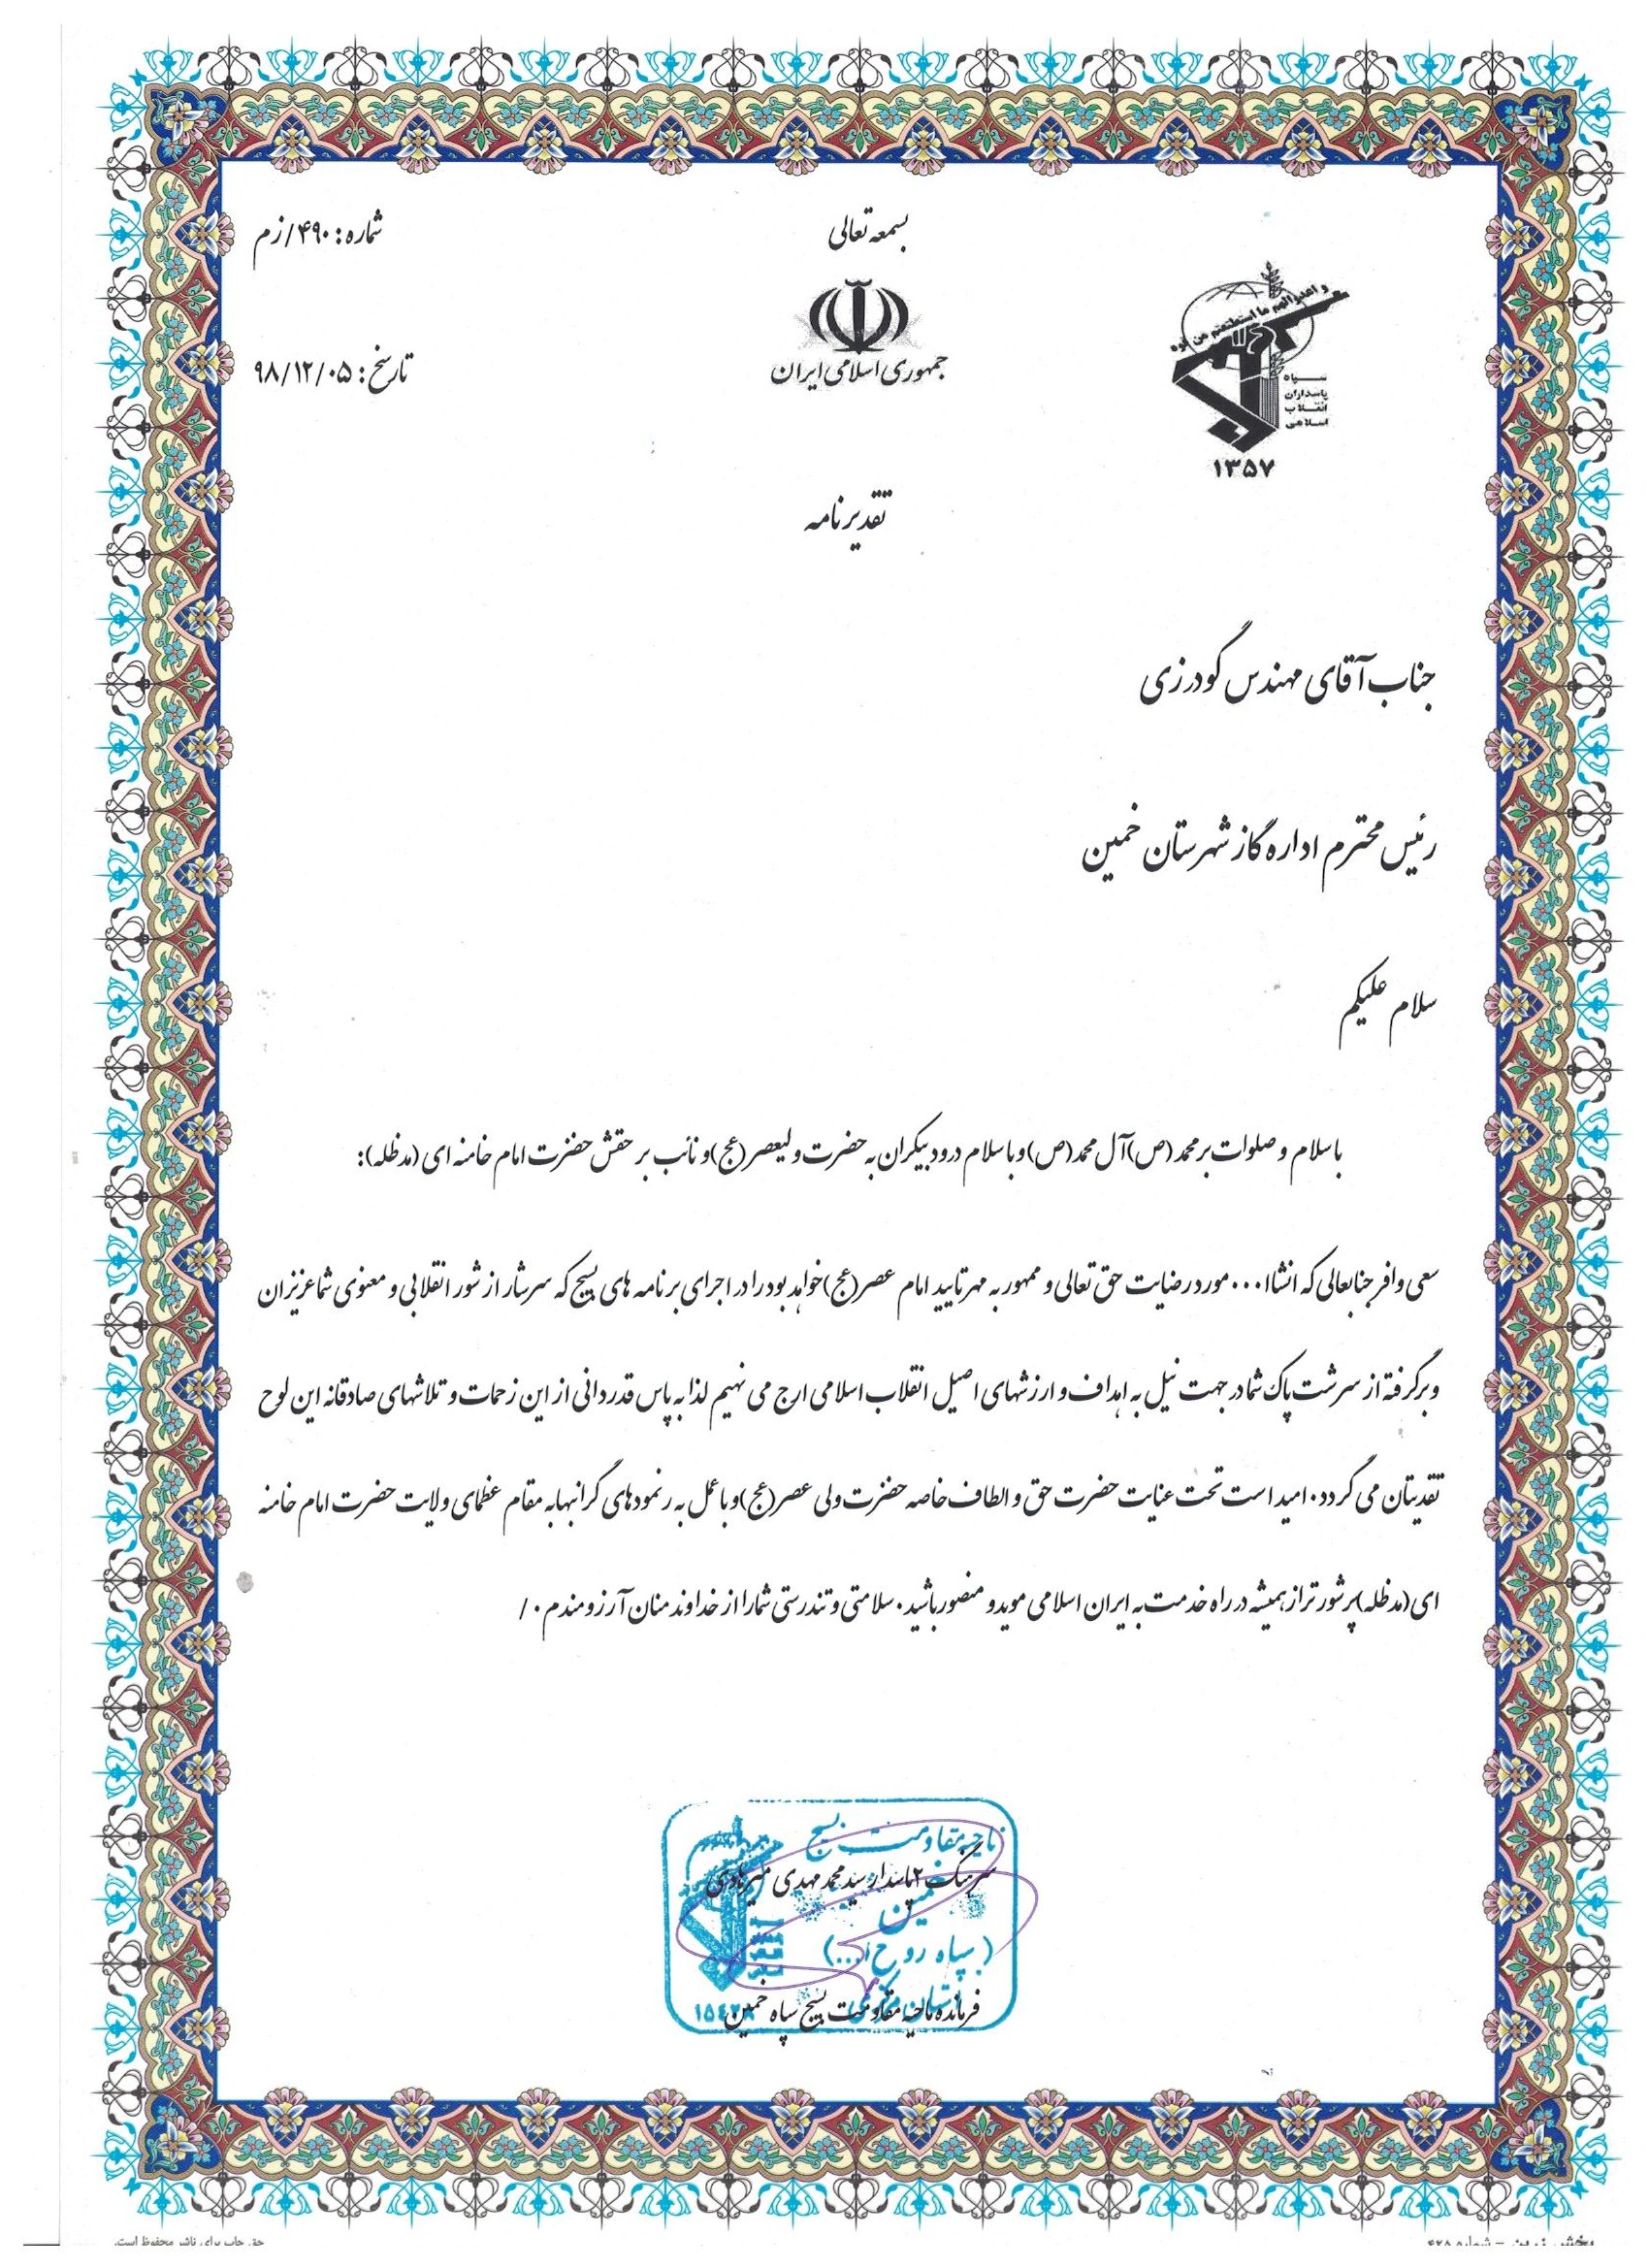 بسمعه تعالی
شماره: ۴۹۰/زم
جمهوری اسلامی ایران
تاریخ: ۹۸/۱۲/۰۵
و اعدوا لهم ما استطعتم من قوه
سپاه
پاسداران
انقلاب
اسلامی
۱۳۵۷
تقدیرنامه
جناب آقای مهندس گودرزی
رئیس محترم اداره گاز شهرستان خمین
سلام علیکم
با سلام و صلوات بر محمد (ص)آل محمد(ص)و با سلام درود بیکران به حضرت ولیعصر(عج)و نائب بر حقش حضرت امام خامنه ای (مدظله):
سعی وافر جنابعالی که انشاا... مورد رضایت حق تعالی و ممهور به مهر تایید امام عصر(عج)خواهد بود را در اجرای برنامه های بسیج که سرشار از شور انقلابی و معنوی شما عزیزان
و برگرفته از سرشت پاک شما در جهت نیل به اهداف و ارزشهای اصیل انقلاب اسلامی ارج می نهیم لذا به پاس قدردانی از این زحمات و تلاشهای صادقانه این لوح
تقدیمتان می گردد. امید است تحت عنایت حضرت حق و الطاف خاصه حضرت ولی عصر(عج)و با عمل به رنمودهای گرانبها به مقام عظمای ولایت حضرت امام خامنه
ای(مدظله)پرشور تر از همیشه در راه خدمت به ایران اسلامی موید و منصور باشید. سلامتی و تندرستی شما را از خداوند منان آرزومندم./
ناحیه مقاومت بسیج
سرهنگ۲پاسدار سید محمد مهدی میرهادی
خمین
(سپاه روح ا...)
استان مرکزی
فرمانده ناحیه مقاومت بسیج سپاه خمین
حق چاپ برای ناشر محفوظ است.
پخش زرین - شماره ۴۲۵